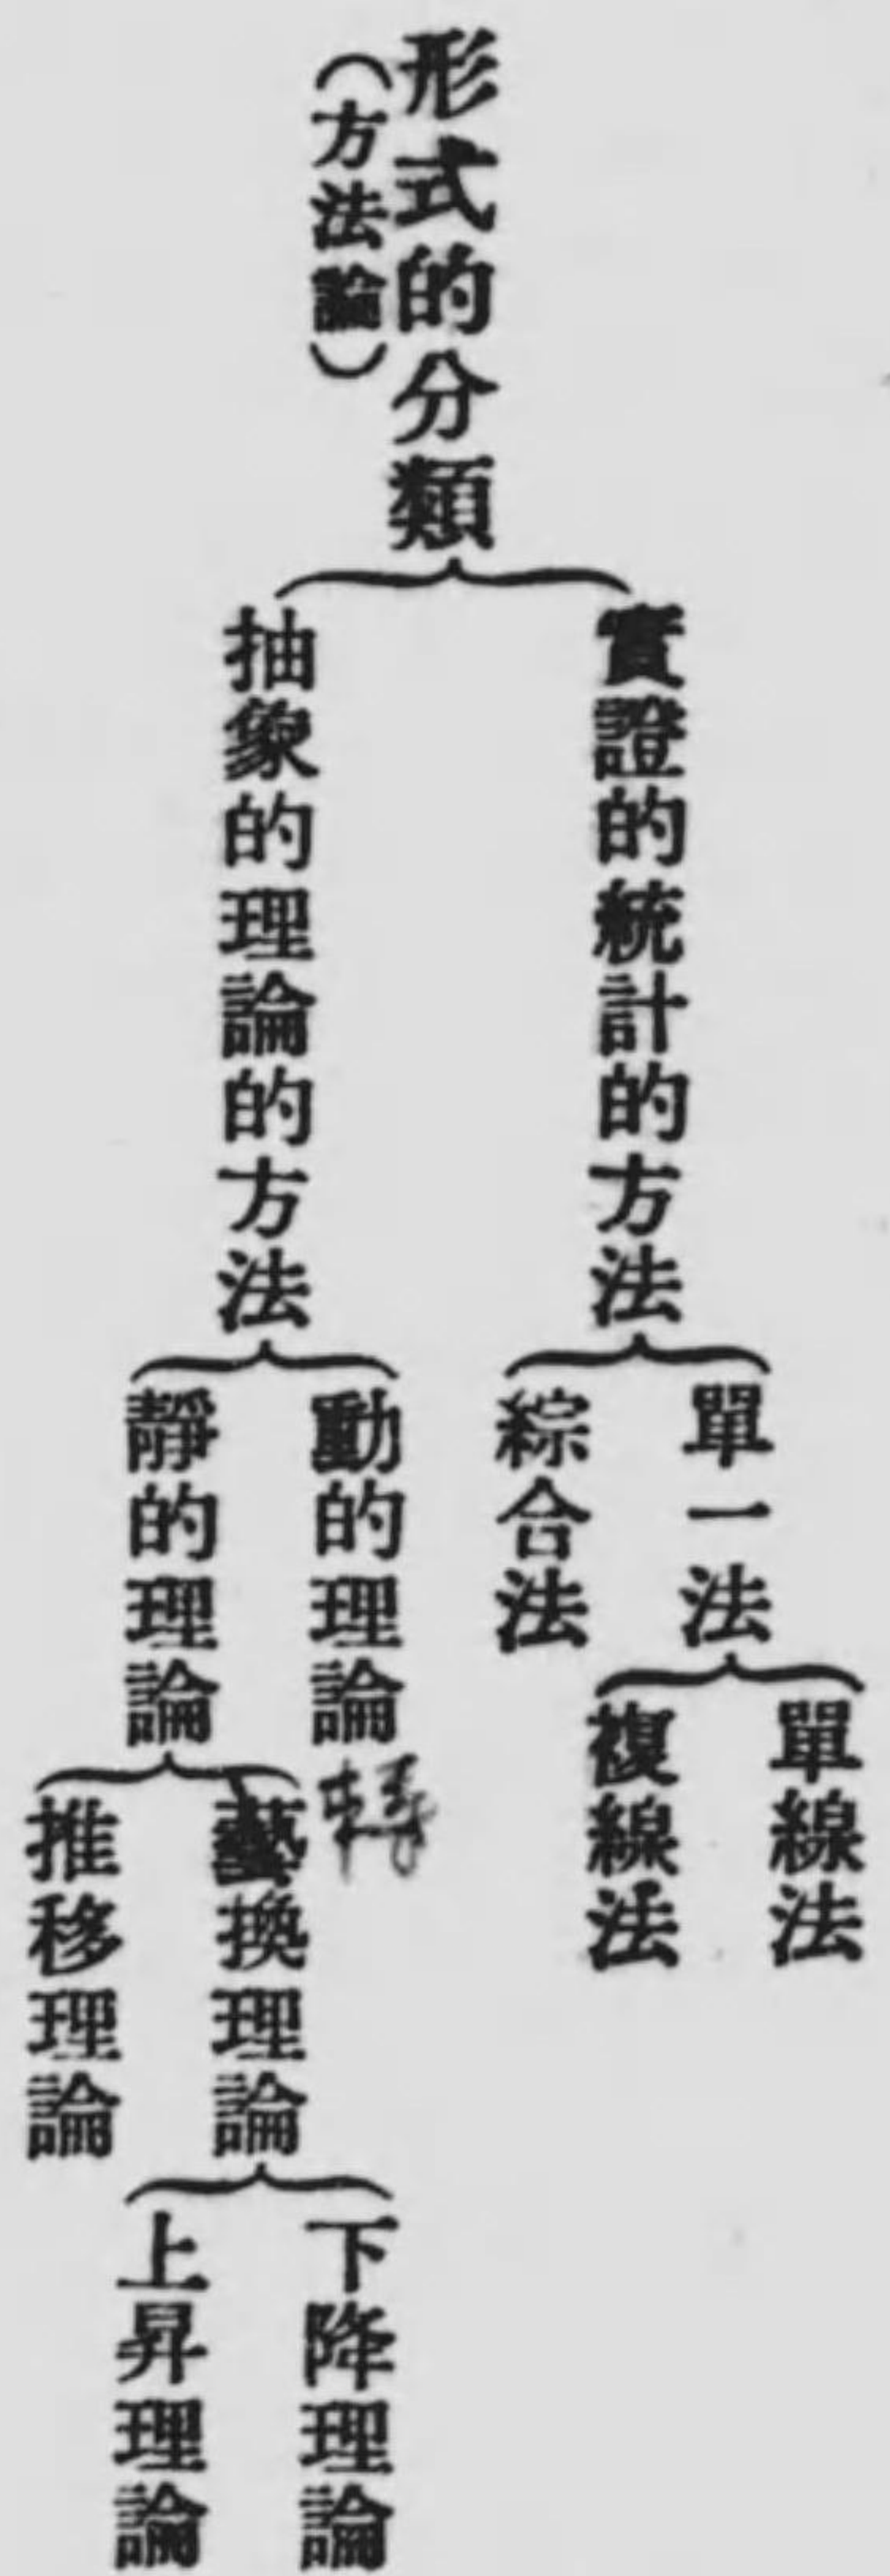 形式的分類
(方法論)
實證的統計的方法
單一法
單線法
複線法
綜合法
抽象的理論的方法
動的理論
靜的理論
換理論
下降理論
上昇理論
推移理論